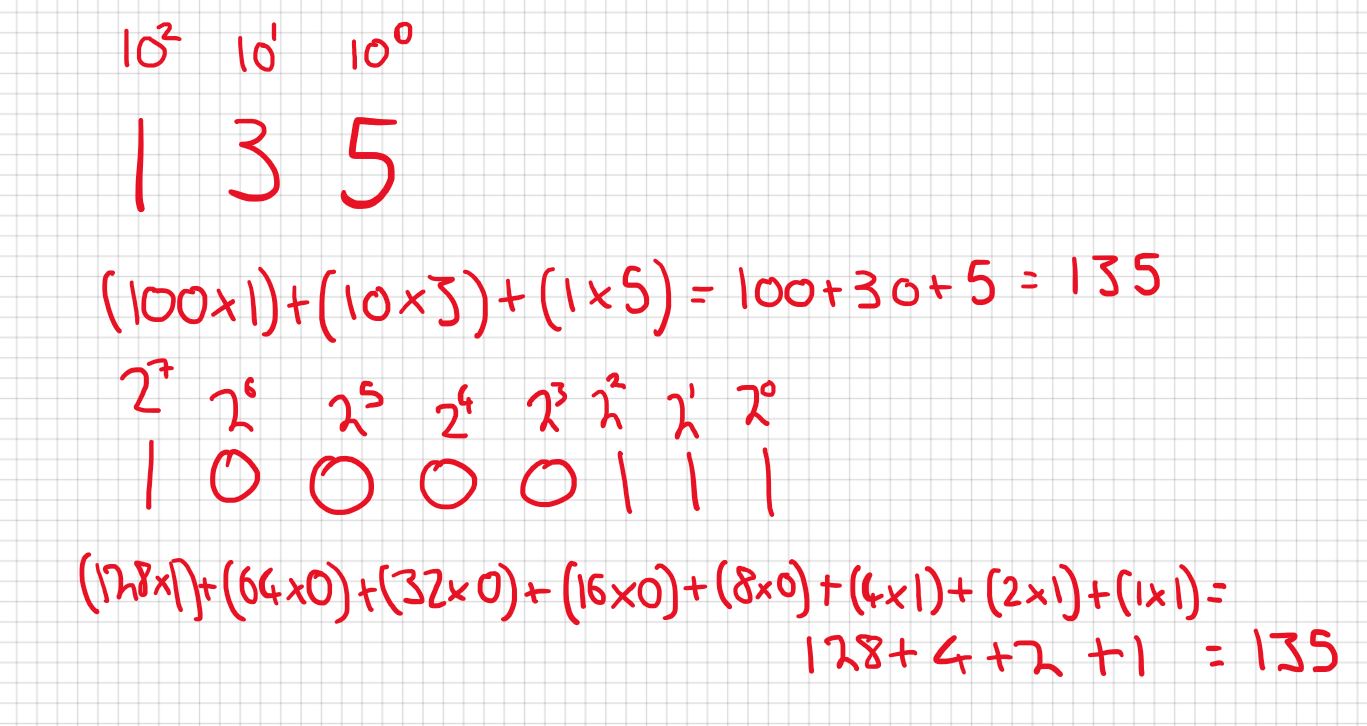 10² 10¹ 10⁰
1 3 5
(100x1)+(10x3)+(1x5) = 100+30+5 = 135
2⁷ 2⁶ 2⁵ 2⁴ 2³ 2² 2¹ 2⁰
1 0 0 0 0 1 1 1
(128x1)+(64x0)+(32x0)+(16x0)+(8x0)+(4x1)+(2x1)+(1x1)=
128+4+2+1 = 135